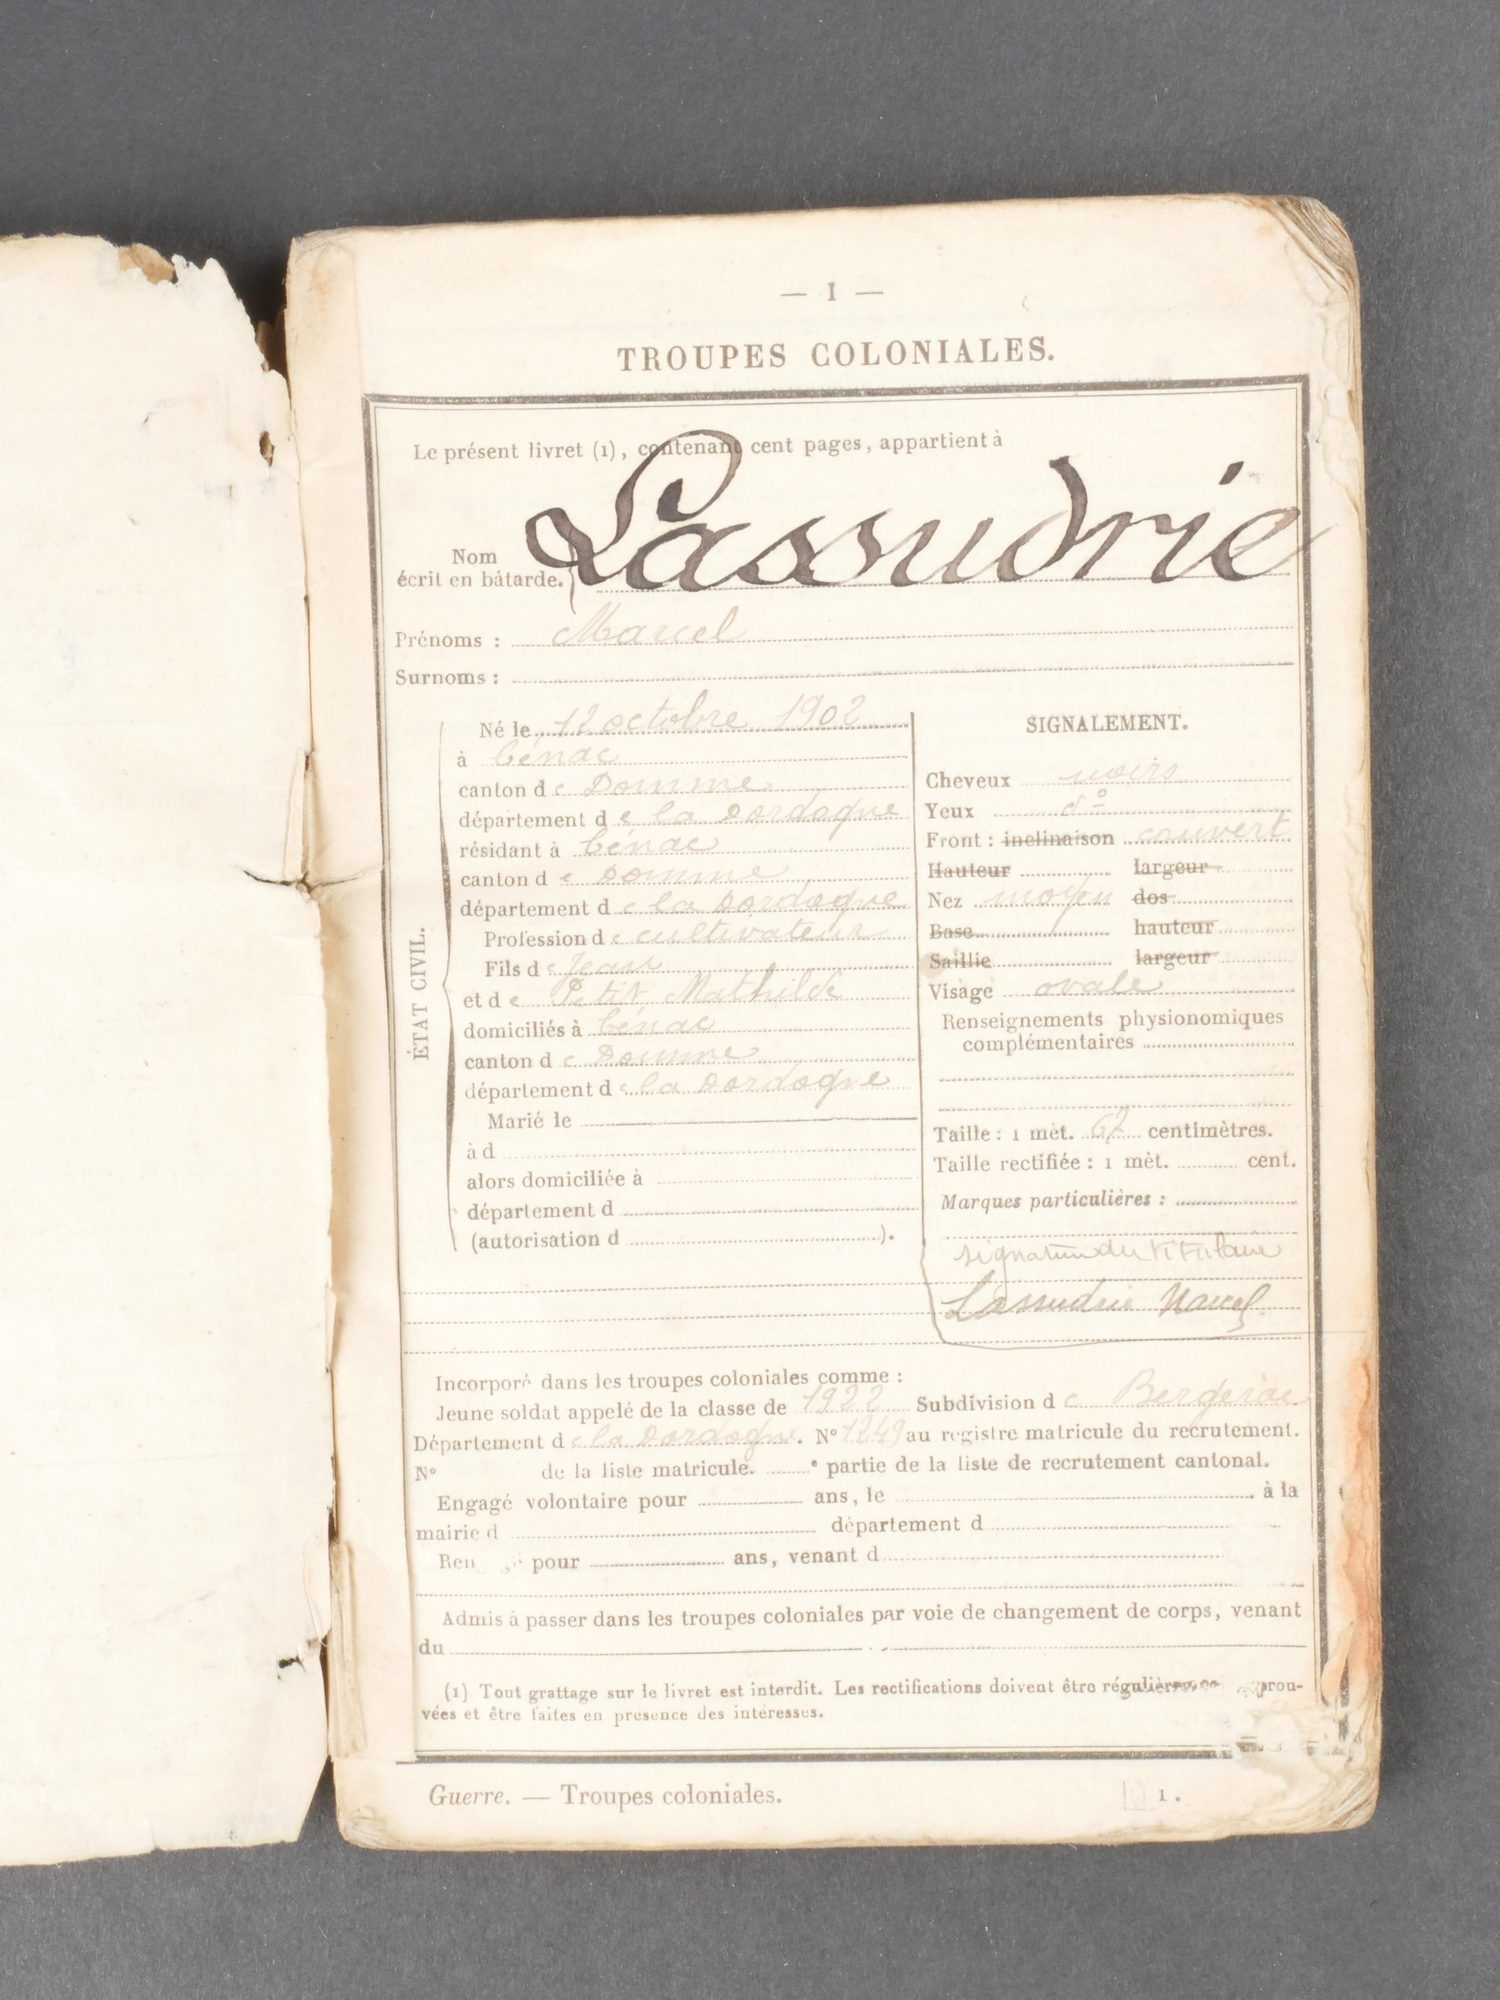 — 1 —
TROUPES COLONIALES.
Le présent livret (1), contenant cent pages, appartient à
Nom
écrit en bâtarde.
Lassudrie
Prénoms : Marcel
Surnoms :
ÉTAT CIVIL.
Né le 12 octobre 1902
à Cénac
canton de Domme
département de la Dordogne
résidant à Cénac
canton de Domme
département de la Dordogne
Profession de cultivateur
Fils de Jean
et de Petit Mathilde
domiciliés à Cénac
canton de Domme
département de la Dordogne
Marié le
à d
alors domiciliée à
département d
(autorisation d ).
SIGNALEMENT.
Cheveux noirs
Yeux do
Front : inclinaison couvert
Hauteur largeur
Nez moyen dos
Base hauteur
Saillie largeur
Visage ovale
Renseignements physionomiques
complémentaires
Taille : 1 mèt. 67 centimètres.
Taille rectifiée : 1 mèt. cent.
Marques particulières :
signature du titulaire
Lassudrie Marcel
Incorporé dans les troupes coloniales comme :
Jeune soldat appelé de la classe de 1922 Subdivision de Bergerac
Département de la Dordogne. N° 1249 au registre matricule du recrutement.
N° de la liste matricule. e partie de la liste de recrutement cantonal.
Engagé volontaire pour ans, le à la
mairie d département d
pour ans, venant d
Admis à passer dans les troupes coloniales par voie de changement de corps, venant
du
(1) Tout grattage sur le livret est interdit. Les rectifications doivent être
vées et être faites en présence des intéressés.
Guerre. — Troupes coloniales. 1.